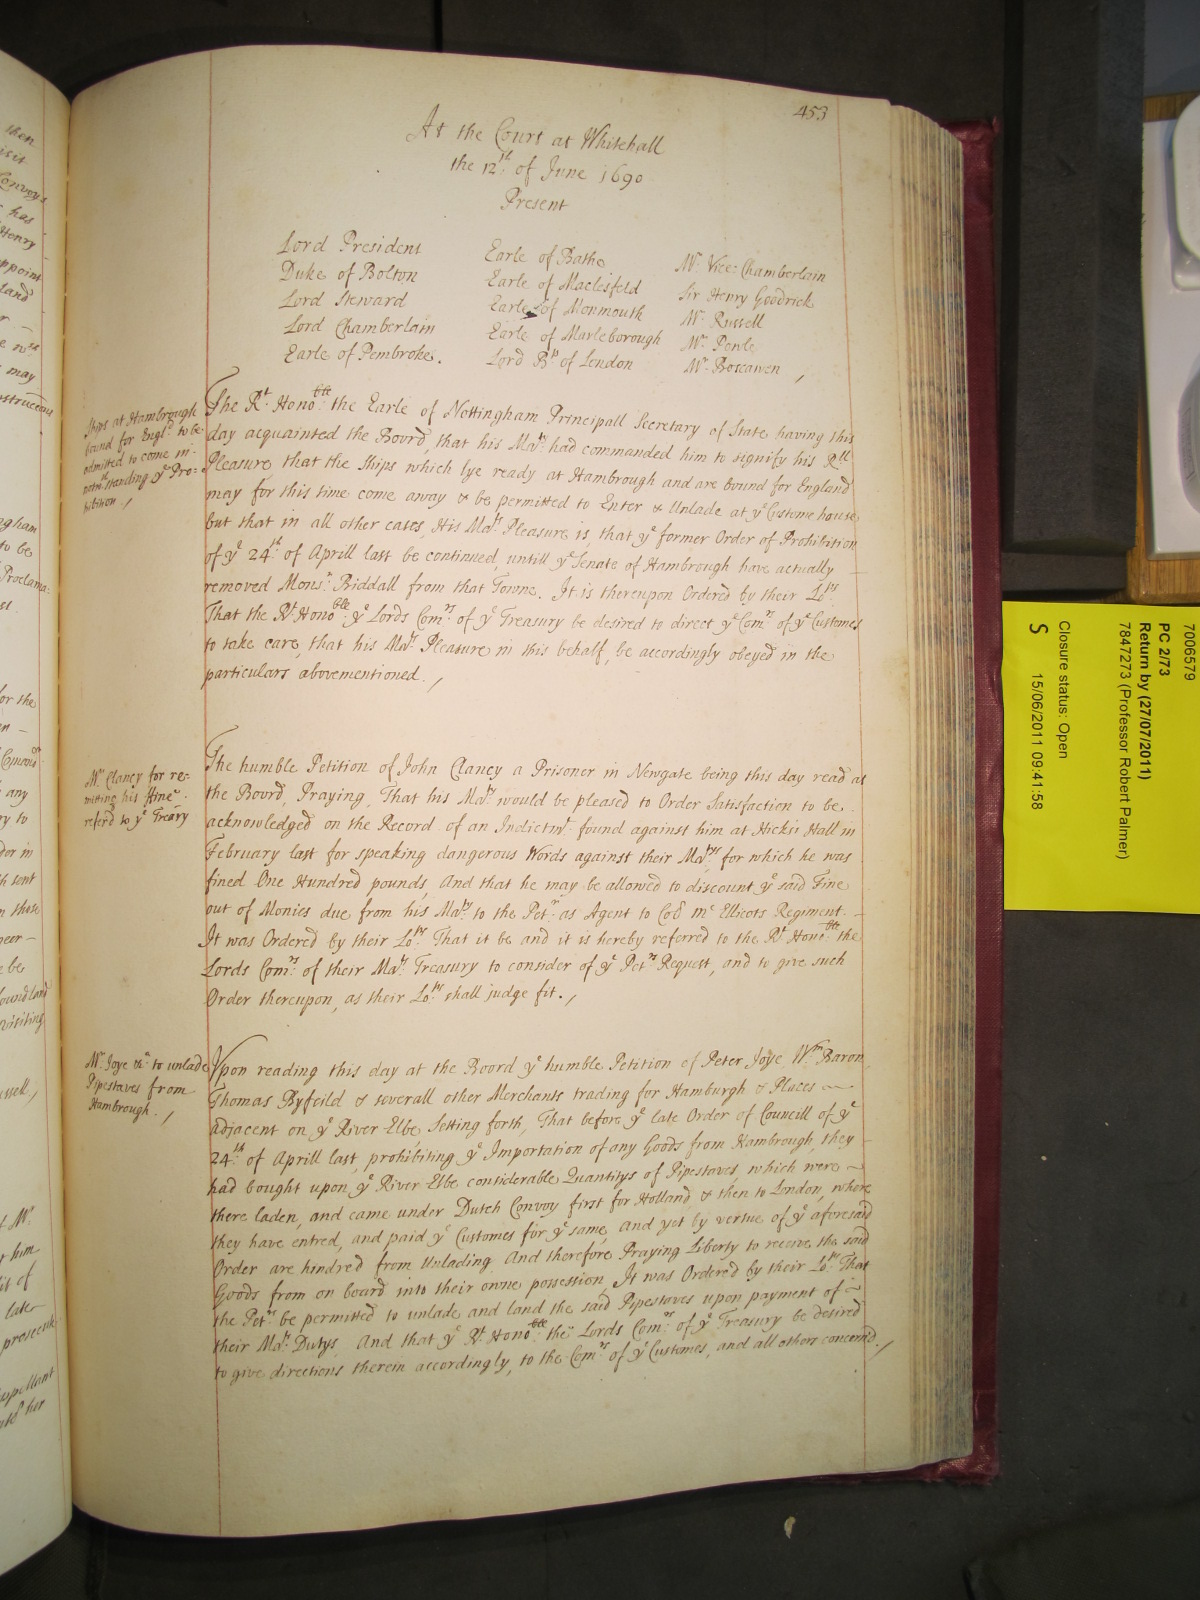 453
At the Court at Whitehall
the 12th of June 1690
Present
Lord President
Duke of Bolton
Lord Steward
Lord Chamberlain
Earle of Pembroke.
Earle of Bathe
Earle of Maclesfeld
Earle of Monmouth
Earle of Marleborough
Lord Bp of London
Mr Vice Chamberlain
Sir Henry Goodrick
Mr Russell
Mr Powle
Mr Boscawen
Ships at Hambrough
bound for Engld to be
admitted to come in
notwthstanding ye Pro=
hibition
The Rt Honoble the Earle of Nottingham Principall Secretary of State having this
day acquainted the Board, that his Maty had commanded him to signify his Rll
Pleasure that the Ships which lye ready at Hambrough and are bound for England
may for this time come away & be permitted to Enter & Unlade at ye Custome house
but that in all other cases, His Mats Pleasure is, that ye former Order of Prohibition
of ye 24th of Aprill last be continued, untill ye Senate of Hambrough have actually
removed Monsr Biddall from that Towne. It is thereupon Ordered by their Lops
That the Rt Honoble ye Lords Comrs of ye Treasury be desired to direct ye Comrs of ye Customes
to take care, that his Mats Pleasure in this behalf, be accordingly obeyed in the
particulars abovementioned.
Mr Clancy for re=
mitting his ffine
referd to ye Treary
The humble Petition of John Clancy a Prisoner in Newgate being this day read at
the Board, Praying, That his Maty would be pleased to Order Satisfaction to be
acknowledged on the Record of an Indictmt found against him at Hicks's Hall in
February last for speaking dangerous Words against their Matys, for which he was
fined One Hundred pounds, And that he may be allowed to discount ye said Fine
out of Monies due from his Maty to the Petr as Agent to Coll mc Ellicots Regiment.
It was Ordered by their Lops That it be and it is hereby referred to the Rt Honoble the
Lords Comrs of their Mats Treasury to consider of ye Petrs Request, and to give such
Order thereupon, as their Lops shall judge fit.
Mr Joye &c to unlade
Pipestaves from
Hambrough.
Upon reading this day at the Board ye humble Petition of Peter Joye, Wm Baron
Thomas Byfeild & severall other Merchants trading for Hamburgh & Places
adjacent on ye River Elbe, Setting forth, That before ye late Order of Councill of ye
24th of Aprill last, prohibiting ye Importation of any Goods from Hambrough, they
had bought upon ye River Elbe considerable Quantitys of Pipestaves, which were
there laden, and came under Dutch Convoy first for Holland & then to London, where
they have entred, and paid ye Customes for ye same, and yet by vertue of ye aforesaid
Order are hindred from Unlading, And therefore Praying Liberty to receive the said
Goods from on board into their owne possession, It was Ordered by their Lops That
the Petrs be permitted to unlade and land the said Pipestaves upon payment of
their Mats Dutys, And that ye Rt Honoble the Lords Comrs of ye Treasury be desired
to give directions therein accordingly, to the Comrs of ye Customes, and all others concernd.
7006579
PC 2/73
Return by (27/07/2011)
7847273 (Professor Robert Palmer)
Closure status: Open
S 15/06/2011 09:41:58